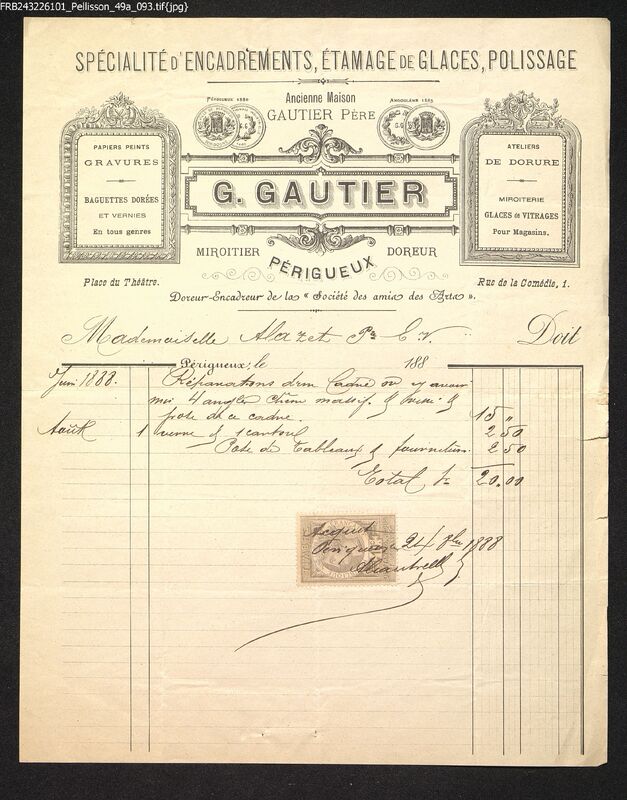 FRB243226101_Pellisson_49a_093.tif{jpg}
SPÉCIALITÉ D'ENCADREMENTS, ÉTAMAGE DE GLACES, POLISSAGE
PÉRIGUEUX 1880
Ancienne Maison
ANGOULÊME 1885
GAUTIER PÈRE
PAPIERS PEINTS
GRAVURES
BAGUETTES DORÉES
ET VERNIES
En tous genres
G. GAUTIER
ATELIERS
DE DORURE
MIROITERIE
GLACES & VITRAGES
Pour Magasins.
MIROITIER
DOREUR
PÉRIGUEUX
Place du Théâtre.
Rue de la Comédie, 1.
Doreur-Encadreur de la « Société des amis des Arts ».
Mademoiselle Alazet Doit
Périgueux, le 188
Juin 1888. Réparations d'un Cadre ou y avoir
mis 4 angles chêne massif &
pose de ce cadre 15 "
Août 1 verre & 1 carton 2 50
Pose de tableaux & fourniture 2 50
Total 20.00
Acquit
Périgueux 24 1888